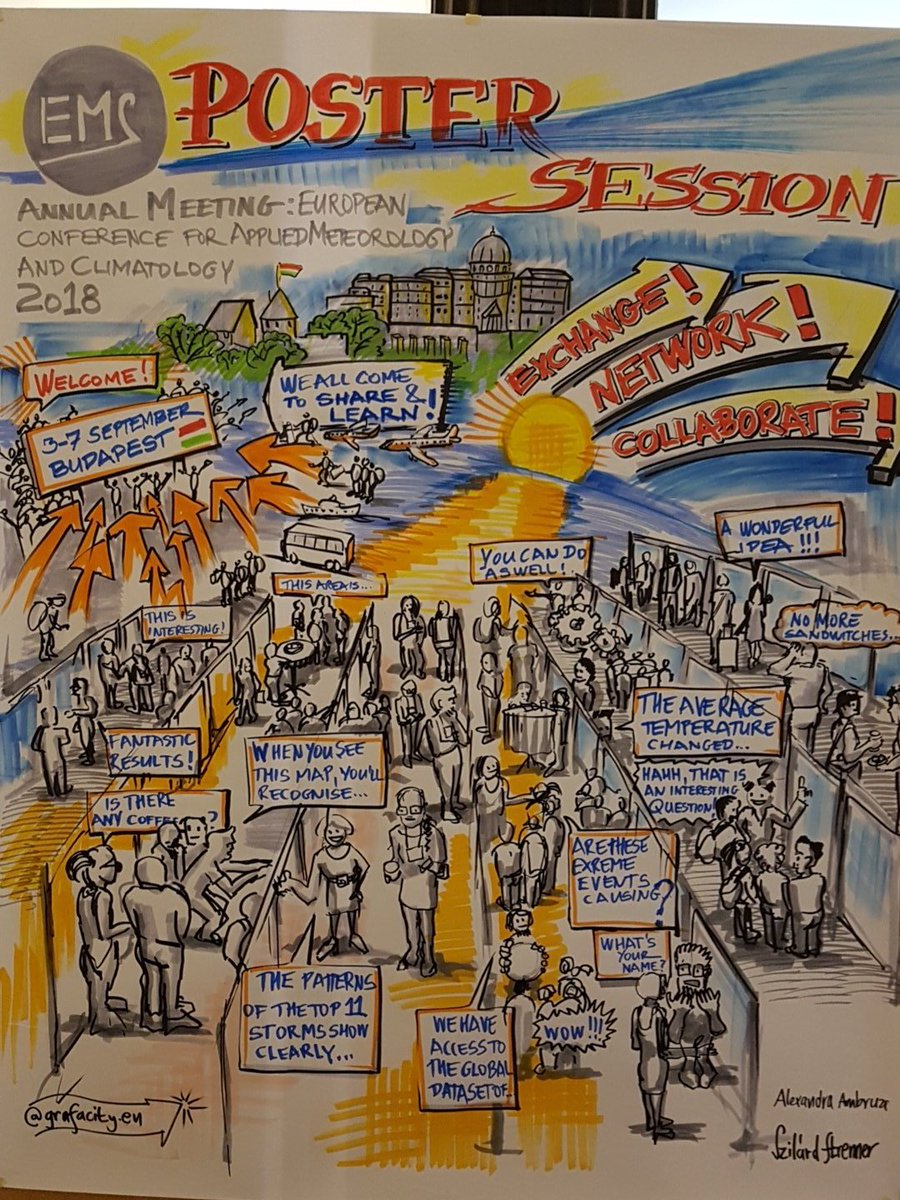 EMS
POSTER
SESSION
ANNUAL MEETING: EUROPEAN
CONFERENCE FOR APPLIED METEOROLOGY
AND CLIMATOLOGY
2018
EXCHANGE!
NETWORK!
COLLABORATE!
WELCOME!
3-7 SEPTEMBER
BUDAPEST
WE ALL COME
TO SHARE &
LEARN!
A WONDERFUL
IDEA!!!
YOU CAN DO
AS WELL!
THIS AREA IS...
THIS IS
INTERESTING!
NO MORE
SANDWITCHES...
THE AVERAGE
TEMPERATURE
CHANGED...
FANTASTIC
RESULTS!
WHEN YOU SEE
THIS MAP, YOU'LL
RECOGNISE...
HAHH, THAT IS
AN INTERESTING
QUESTION!
IS THERE
ANY COFFEE ?
ARE THESE
EXREME
EVENTS
CAUSING?
WHAT'S
YOUR
NAME?
THE PATTERNS
OF THE TOP 11
STORMS SHOW
CLEARLY...
WE HAVE
ACCESS TO
THE GLOBAL
DATASET OF...
WOW!!!
@grafacity.eu
Alexandra Ambruzs
Szilárd Strenner